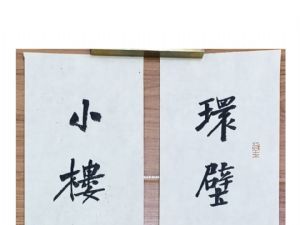 環璧
小樓